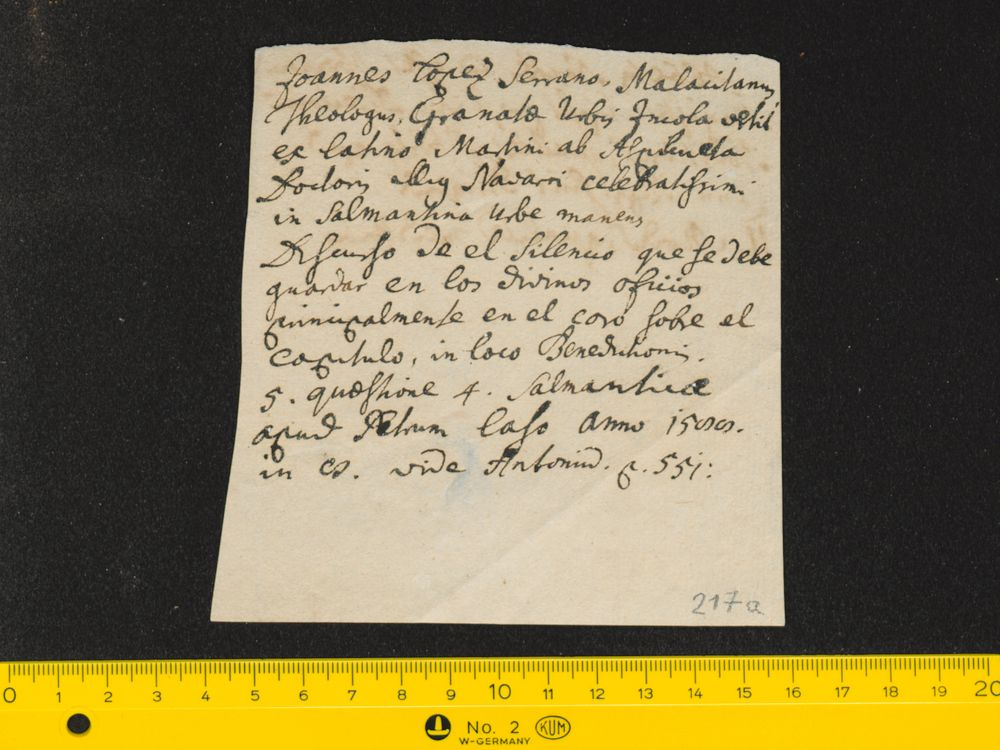 Joannes Lopez Serrano, Malacitanus
Theologus, Granatæ Urbis Incola vertit
ex latino Martini ab Aspilcueta
Doctoris Navarri celebratissimi
in Salmantina Urbe manens
Discurso de el Silencio que se debe
guardar en los divinos oficios
principalmente en el coro sobre el
capitulo, in loco Benedictionis.
5. quæstione 4. Salmanticæ
apud Petrum Laso anno 1588.
in 8. vide Antoniũ. p. 551:
217a
0 1 2 3 4 5 6 7 8 9 10 11 12 13 14 15 16 17 18 19 20
No. 2 KUM
W-GERMANY